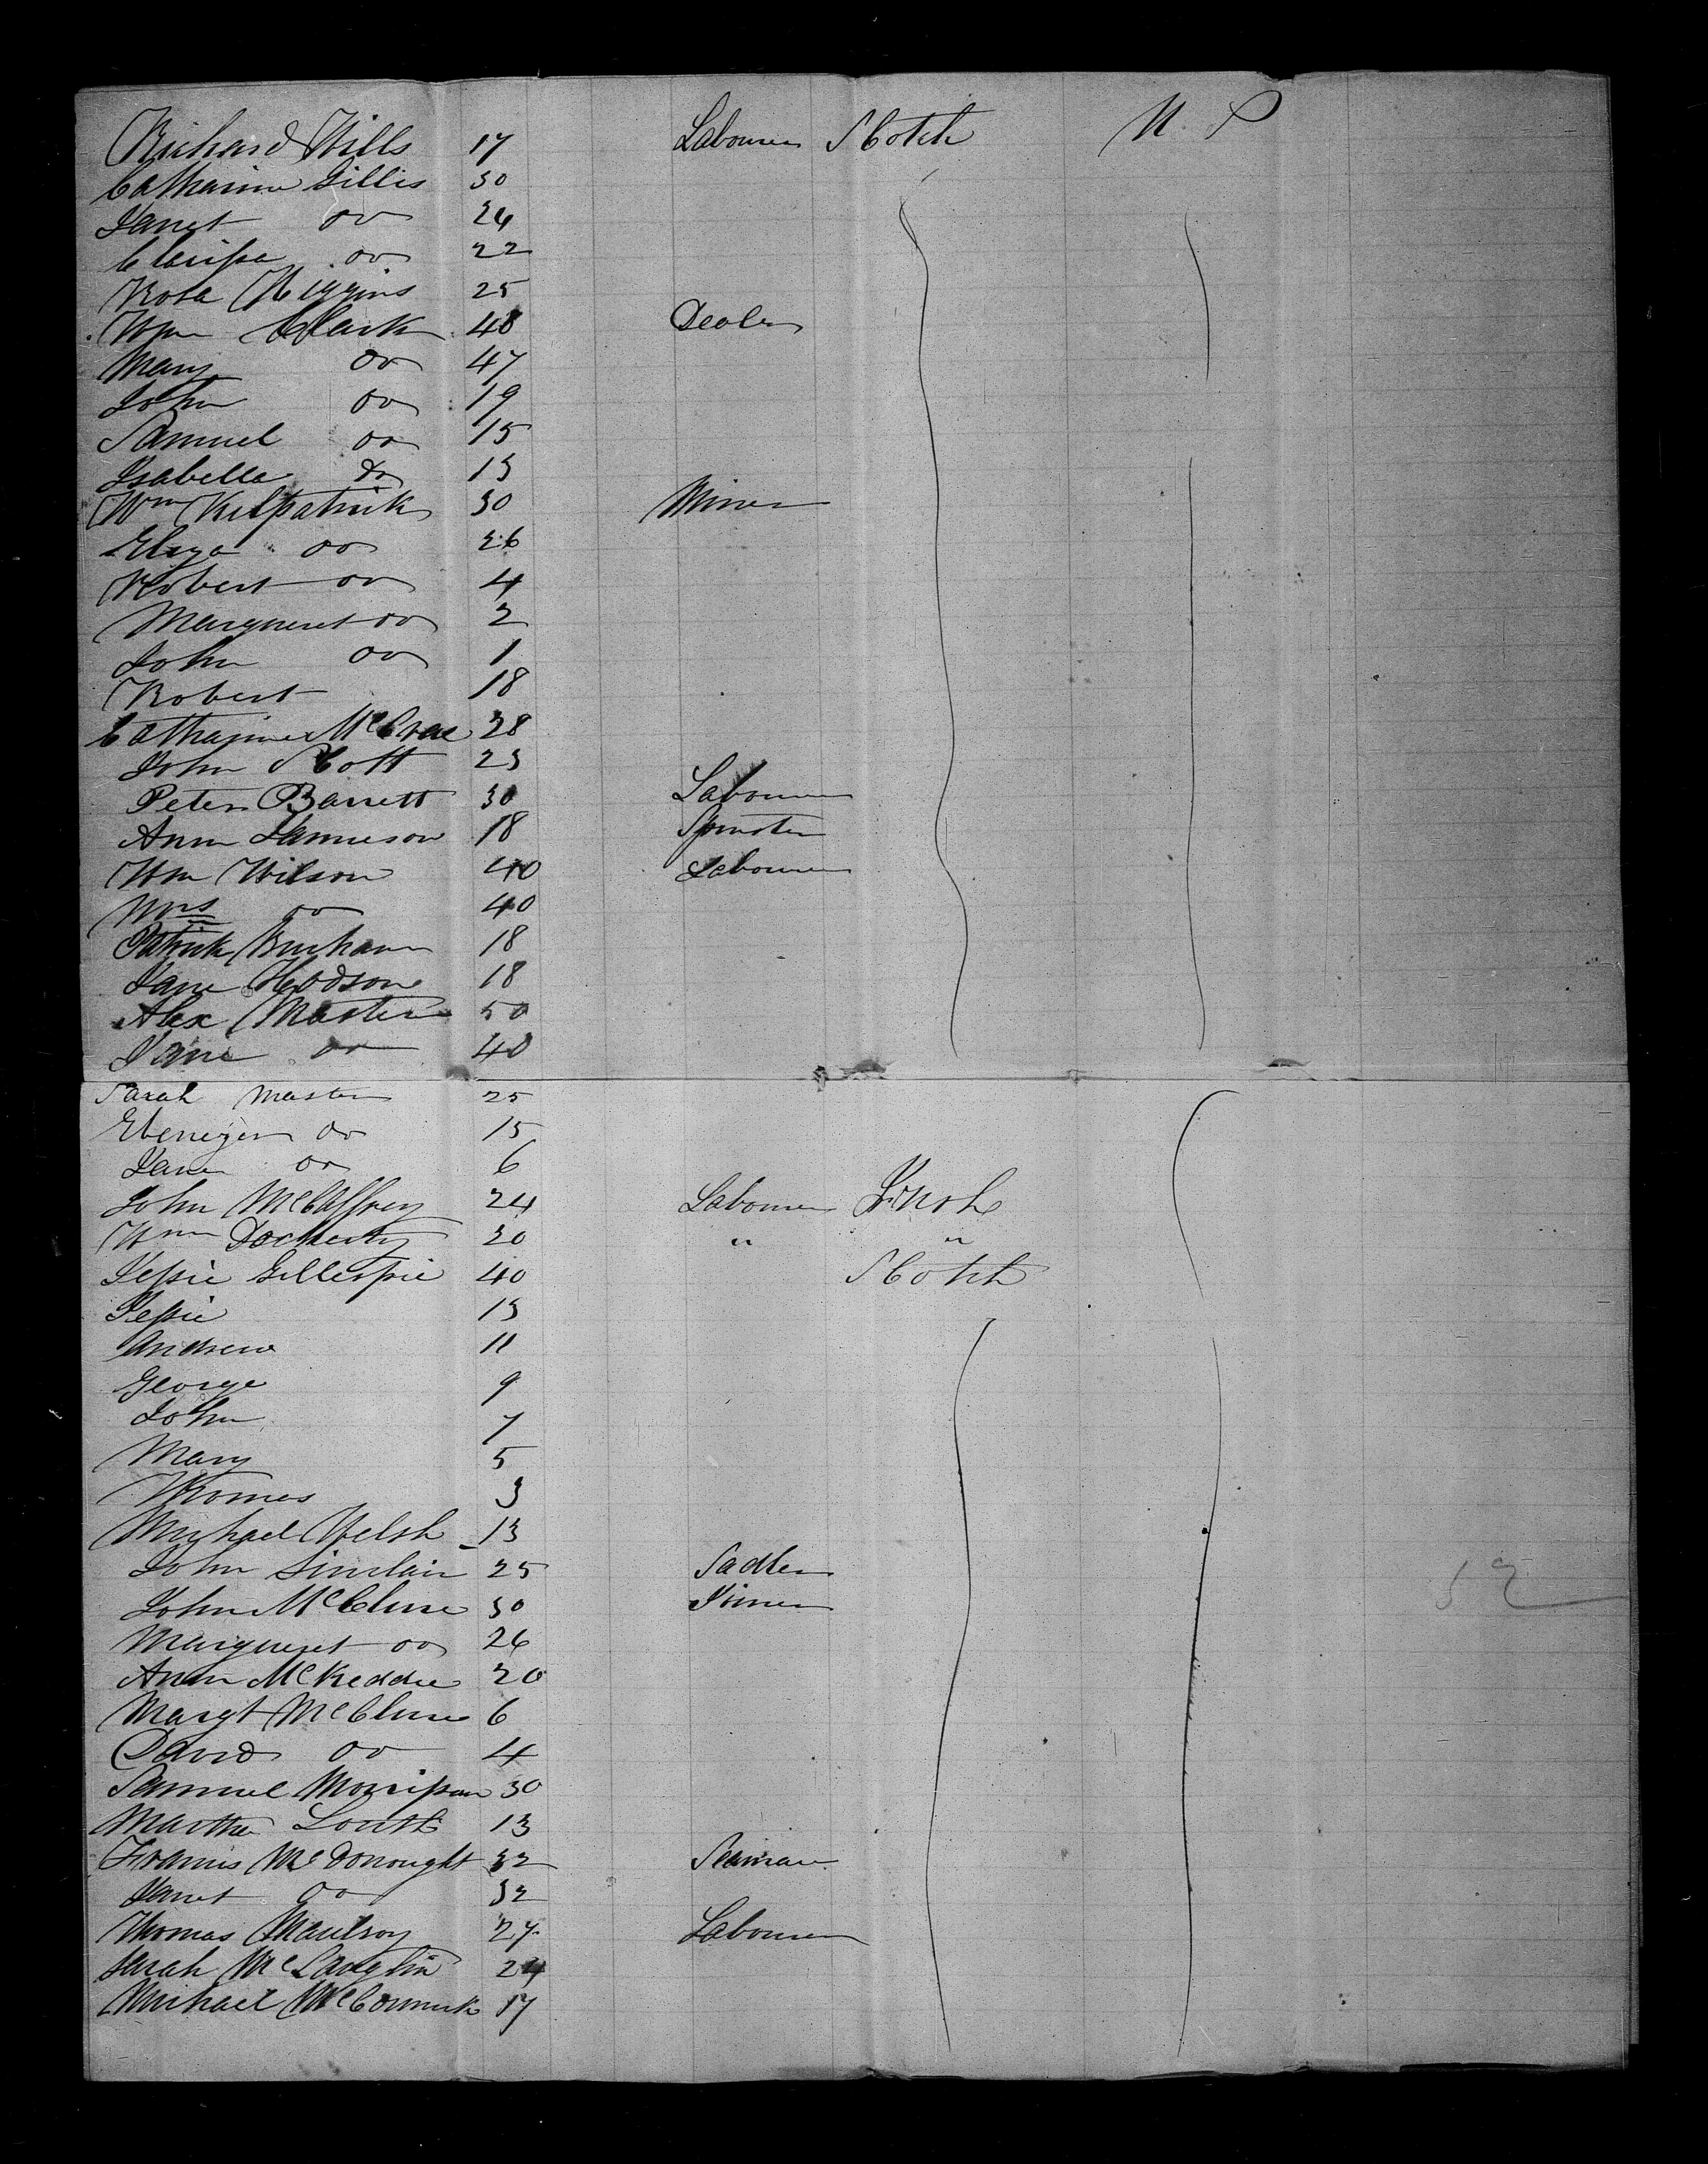 Richard Wills 17 Labourer Scotch U. S
Catharine Gillis 30
Janet do 24
Clarissa do 22
Rosa Higgins 25
Wm Clark 48 Dealer
Mary do 47
John do 19
Samuel do 15
Isabella Do 13
Wm Kilpatrick 30 Miner
Eliza do 26
Robert do 4
Margueret do 2
John do 1
Robert 18
Catharine McCrae 28
John Scott 23
Peter Barrett 30 Labourer
Ann Jamieson 18 Spinster
Wm Wilson 40 Labourer
Mrs do 40
Patrick 18
Jane Hodson 18
Alex Master 50
Jane do 40
Sarah Master 25
Ebenezer do 15
Jane do 6
John McCaffrey 24 Labourer Irish
Wm Docherty 30 " "
Jessie Gillespie 40 Scotch
Jessie 13
Andrew 11
George 9
John 7
Mary 5
Thomas 3
Michael Welsh 13
John Sinclair 25 Sadler
John McClure 30 Joiner
Margueret do 26
Ann McKeddie 20
Margt McClure 6
David do 4
Samuel Morrison 30
Martha 13
Francis McDonought 32 Seaman
Janet do 32
Thomas 27 Labourer
Sarah McLauglin 24
Michael McCormick 17
52